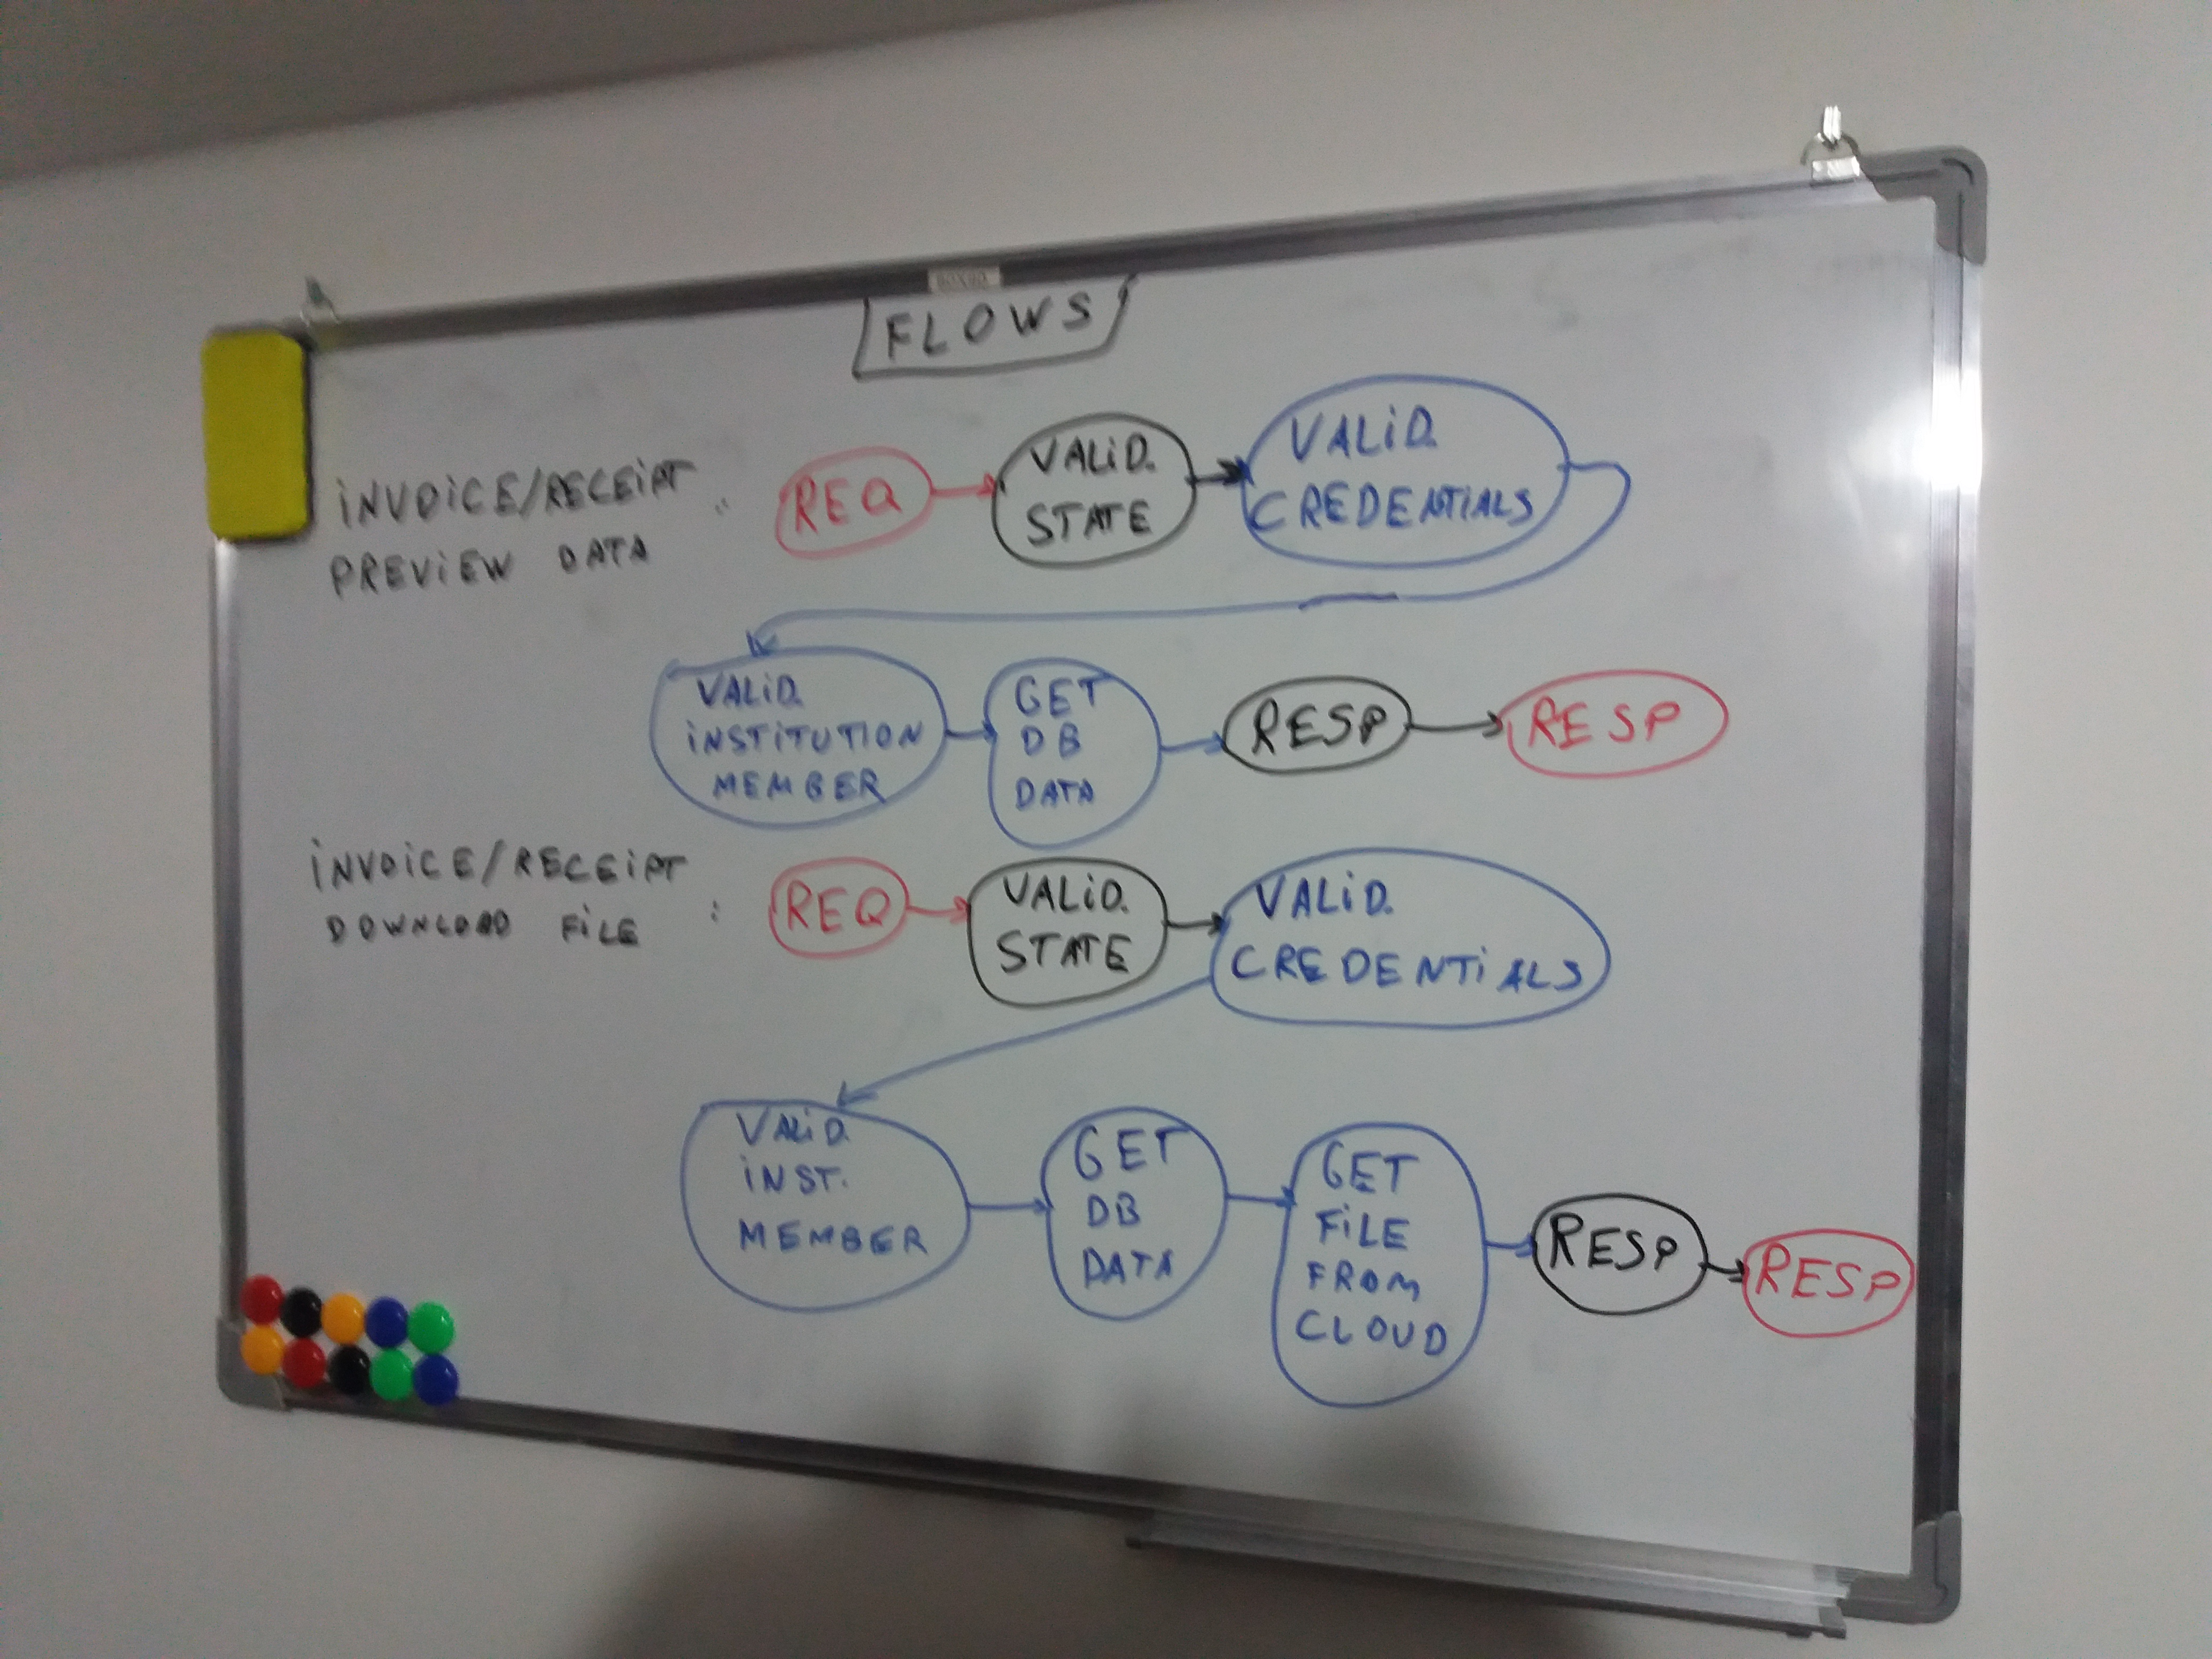 FLOWS
INVOICE/RECEIPT
PREVIEW DATA :
REQ
VALID.
STATE
VALID.
CREDENTIALS
VALID.
INSTITUTION
MEMBER
GET
DB
DATA
RESP
RESP
INVOICE/RECEIPT
DOWNLOAD FILE :
REQ
VALID.
STATE
VALID.
CREDENTIALS
VALID.
INST.
MEMBER
GET
DB
DATA
GET
FILE
FROM
CLOUD
RESP
RESP